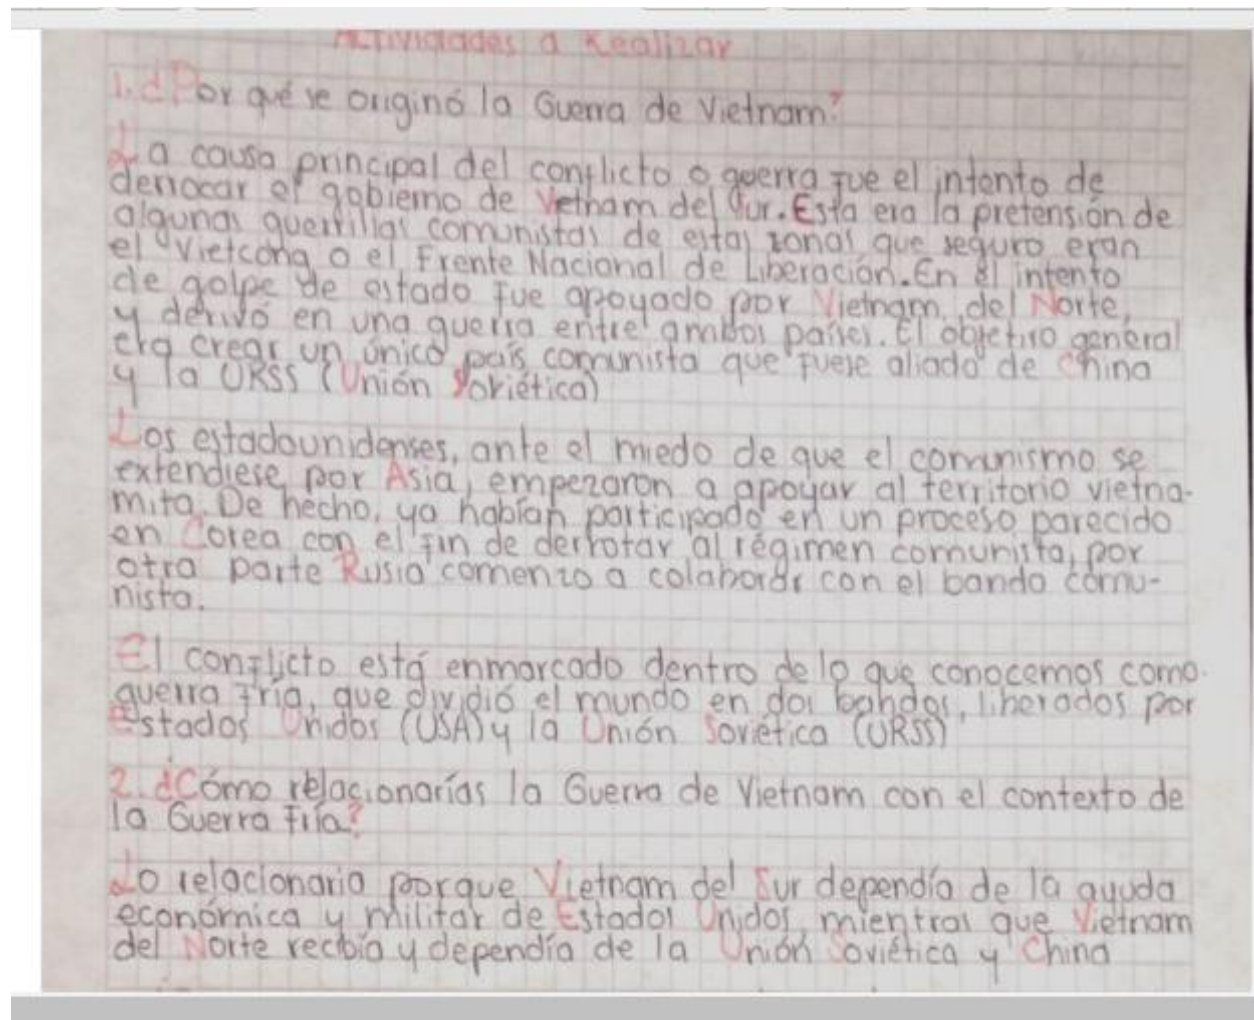 Actividades a Realizar
1. ¿Por qué se originó la Guerra de Vietnam?
La causa principal del conflicto o guerra fue el intento de
derrocar el gobierno de Vietnam del Sur. Esta era la pretensión de
algunas guerrillas comunistas de estas zonas que seguro eran
el Vietcong o el Frente Nacional de Liberación. En el intento
de golpe de estado fue apoyado por Vietnam del Norte,
y derivó en una guerra entre ambos países. El objetivo general
era crear un único país comunista que fuese aliado de China
y la URSS (Unión Soviética)
Los estadounidenses, ante el miedo de que el comunismo se
extendiese por Asia, empezaron a apoyar al territorio vietna-
mita. De hecho, ya habían participado en un proceso parecido
en Corea con el fin de derrotar al régimen comunista, por
otra parte Rusia comenzo a colaborar con el bando comu-
nista.
El conflicto está enmarcado dentro de lo que conocemos como
guerra fría, que dividió el mundo en dos bandos, liherados por
Estados Unidos (USA) y la Unión Soviética (URSS)
2. ¿Cómo relacionarías la Guerra de Vietnam con el contexto de
la Guerra fría?
Lo relacionaria porque Vietnam del Sur dependía de la ayuda
económica y militar de Estados Unidos, mientras que Vietnam
del Norte recibía y dependía de la Unión Soviética y China